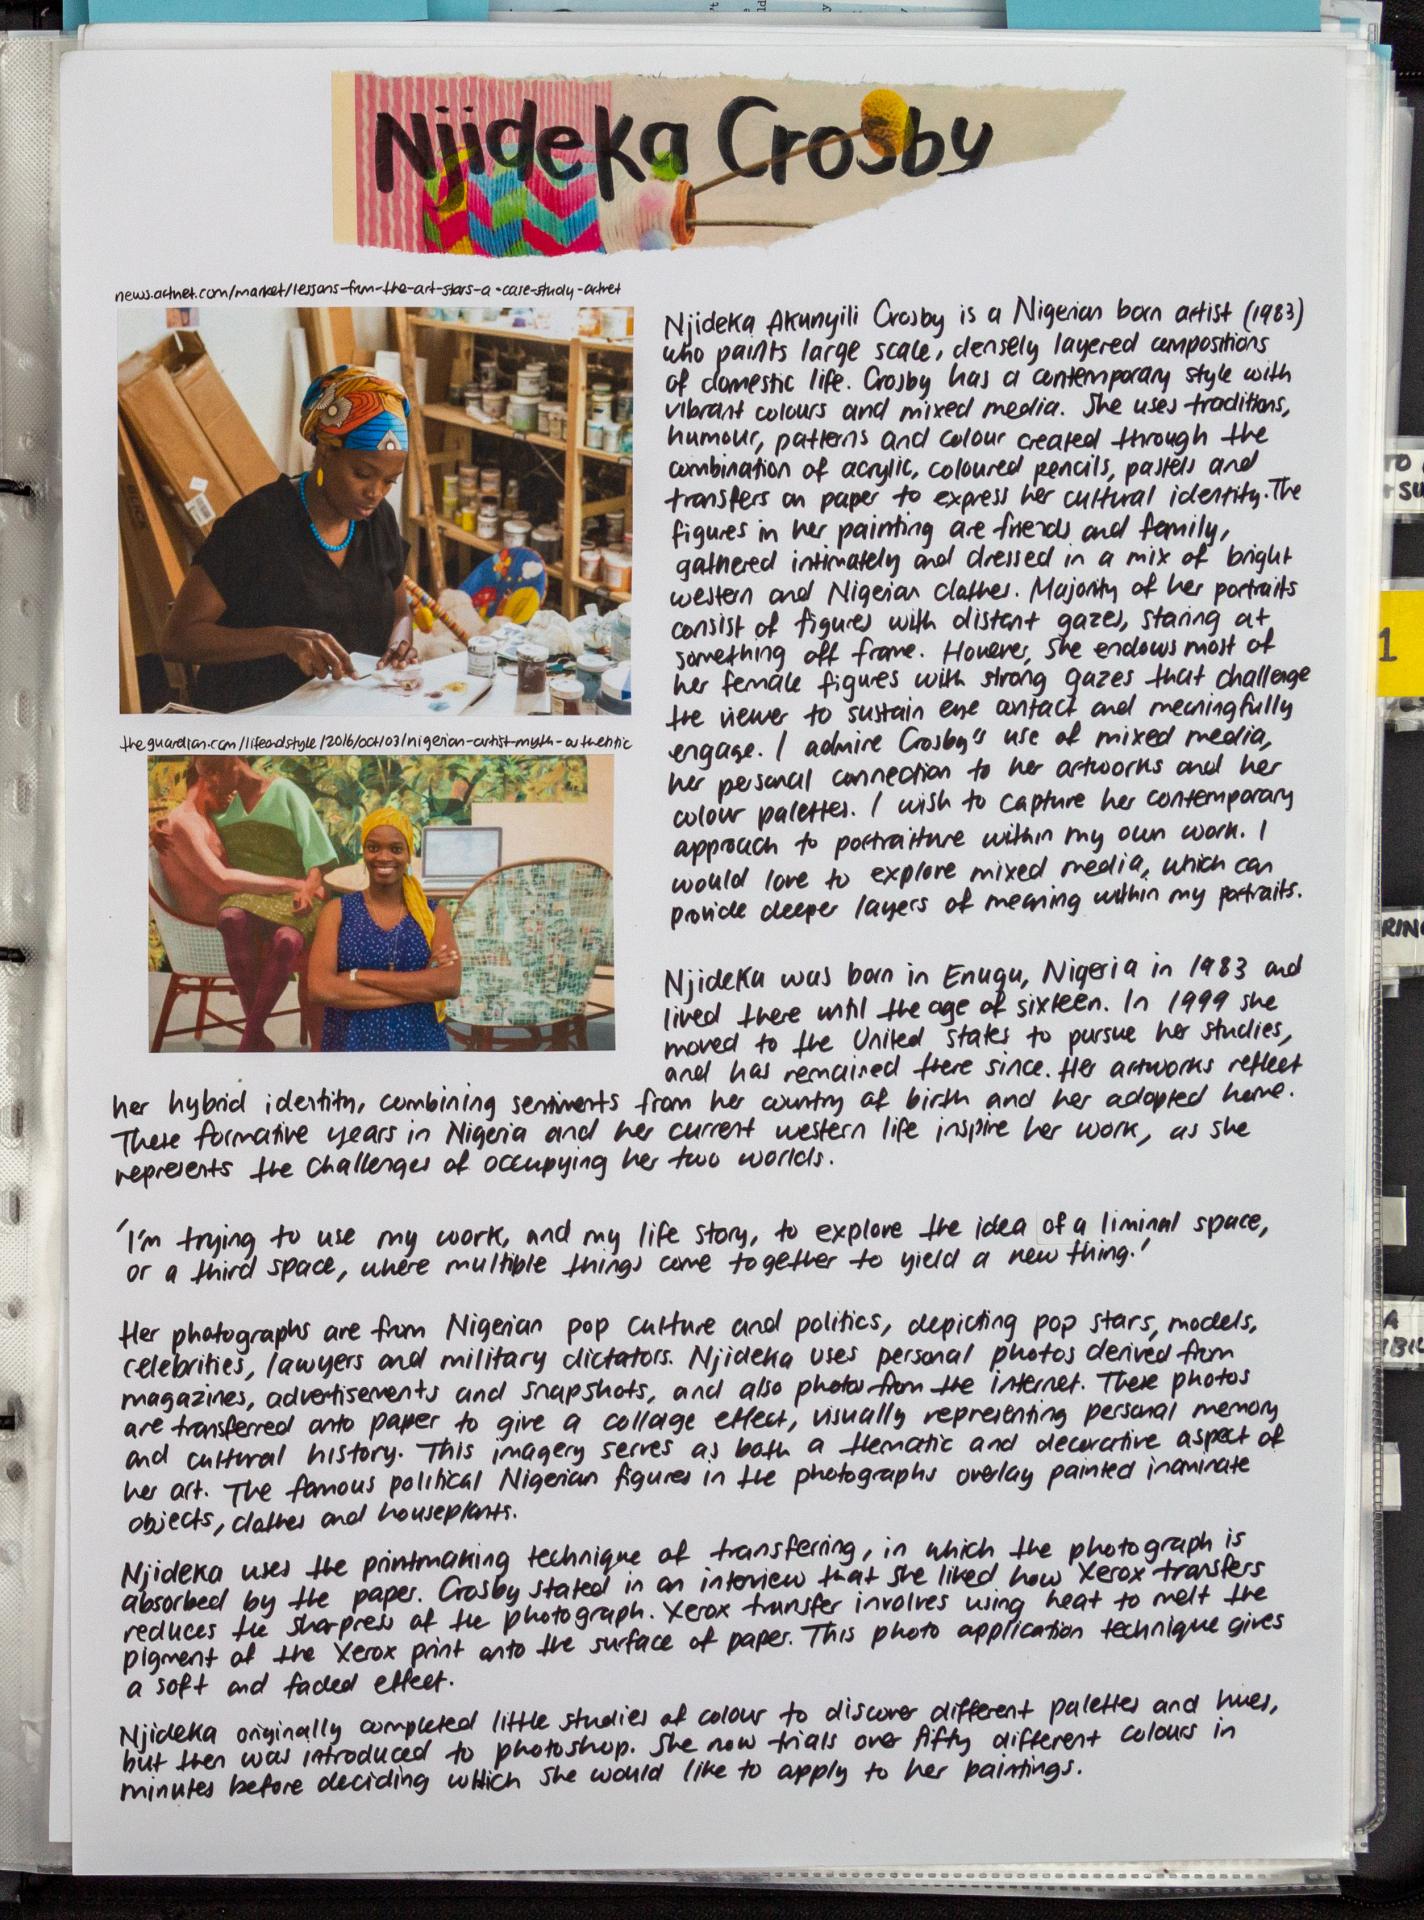 Njideka Crosby
news.artnet.com/market/lessons-from-the-art-stars-a-case-study-artnet
theguardian.com/lifeandstyle/2016/oct/03/nigerian-artist-myth-authentic
Njideka Akunyili Crosby is a Nigerian born artist (1983)
who paints large scale, densely layered compositions
of domestic life. Crosby has a contemporary style with
vibrant colours and mixed media. She uses traditions,
humour, patterns and colour created through the
combination of acrylic, coloured pencils, pastels and
transfers on paper to express her cultural identity. The
figures in her painting are friends and family,
gathered intimately and dressed in a mix of bright
western and Nigerian clothes. Majority of her portraits
consist of figures with distant gazes, staring at
something off frame. However, she endows most of
her female figures with strong gazes that challenge
the viewer to sustain eye contact and meaningfully
engage. I admire Crosby's use of mixed media,
her personal connection to her artworks and her
colour palettes. I wish to capture her contemporary
approach to portraiture within my own work. I
would love to explore mixed media, which can
provide deeper layers of meaning within my portraits.
Njideka was born in Enugu, Nigeria in 1983 and
lived there until the age of sixteen. In 1999 she
moved to the United States to pursue her studies,
and has remained there since. Her artworks reflect
her hybrid identity, combining sentiments from her country of birth and her adopted home.
These formative years in Nigeria and her current western life inspire her work, as she
represents the challenges of occupying her two worlds.
'I'm trying to use my work, and my life story, to explore the idea of a liminal space,
or a third space, where multiple things come together to yield a new thing.'
Her photographs are from Nigerian pop culture and politics, depicting pop stars, models,
celebrities, lawyers and military dictators. Njideka uses personal photos derived from
magazines, advertisements and snapshots, and also photos from the internet. These photos
are transferred onto paper to give a collage effect, visually representing personal memory
and cultural history. This imagery serves as both a thematic and decorative aspect of
her art. The famous political Nigerian figures in the photographs overlay painted inanimate
objects, clothes and houseplants.
Njideka uses the printmaking technique of transferring, in which the photograph is
absorbed by the paper. Crosby stated in an interview that she liked how Xerox transfers
reduces the sharpness of the photograph. Xerox transfer involves using heat to melt the
pigment of the Xerox print onto the surface of paper. This photo application technique gives
a soft and faded effect.
Njideka originally completed little studies of colour to discover different palettes and hues,
but then was introduced to photoshop. She now trials over fifty different colours in
minutes before deciding which she would like to apply to her paintings.
1